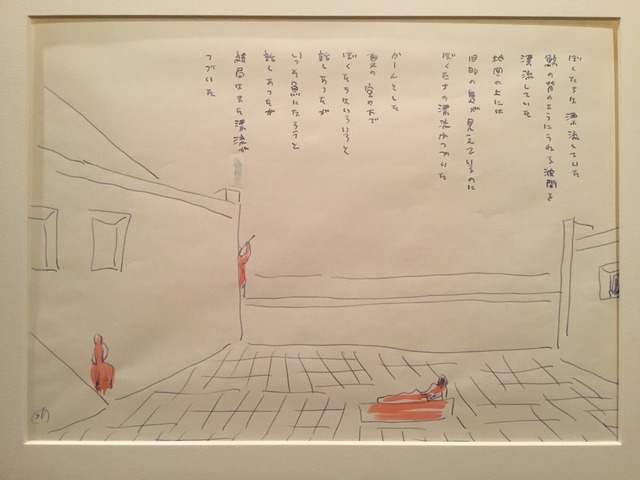 ぼくたちは漂流していた
鯨の背のようにうねる波間を
漂流していた
地図の上には
目的の島が見えているのに
ぼくたちの漂流はつづいた
かーんとした
夏の空の下で
ぼくたちはいろいろと
話しあったが
いっそ魚になろうと
話しあったが
結局はまた漂流が
つづいた